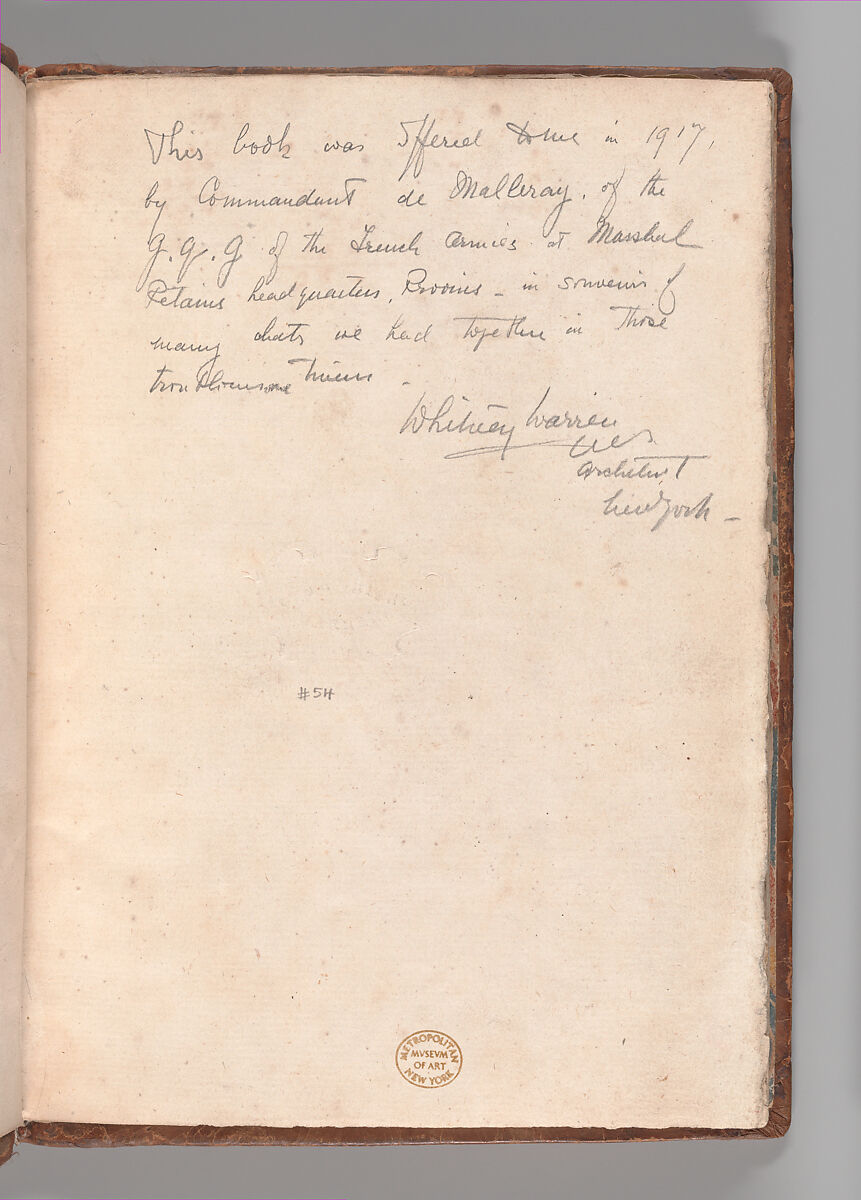 This book was offered to me in 1917,
by Commandant de Malleray, of the
G.Q.G of the French Armies at Marshal
Pétains headquarters, Provins - in souvenir of
many chats we had together in those
troublousome times.
Whitney Warren
Architect
New York -
#54
METROPOLITAN
MVSEVM
OF ART
NEW YORK